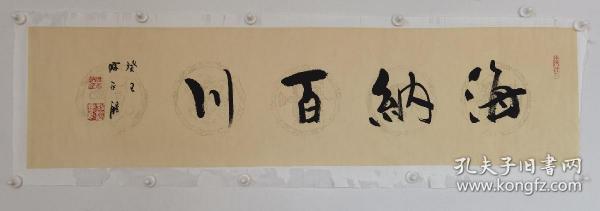 海納百川
孔夫子旧书网
www.kongfz.com